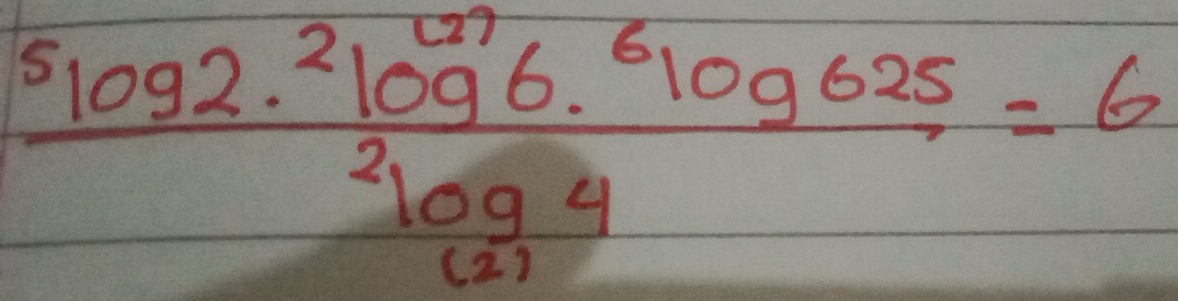 (2)
⁵log2. ²log 6. ⁶log 625 = 6
²log 4
(2)